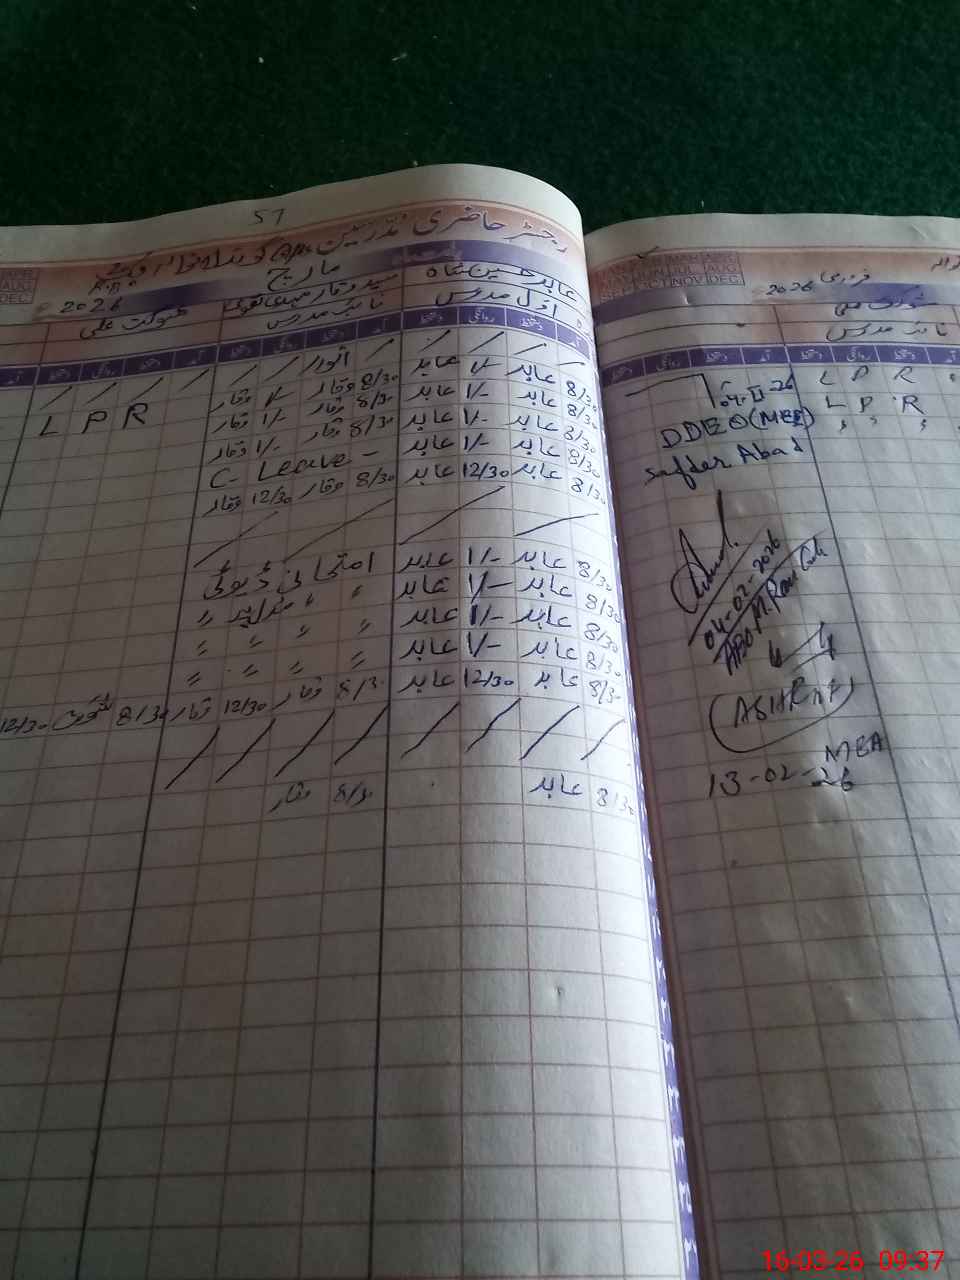 57
رجسٹر حاضری مدرسین
مارچ
2026
عابد حسین شاہ
سید وقار مہدی نقوی
شوکت علی
اول مدرس
نائب مدرس
آمد دستخط روانگی دستخط
/ / / / اتوار / /
8/30 عابد 1/- عابد 8/30 وقار 1/- وقار
8/30 عابد 1/- عابد 8/30 وقار 1/- وقار
8/30 عابد 1/- عابد 8/30 وقار 1/- وقار
8/30 عابد 1/- عابد C- Leave -
8/30 عابد 12/30 عابد 8/30 وقار 12/30 وقار
L P R
8/30 عابد 1/- عابد امتحانی ڈیوٹی
8/30 عابد 1/- عابد
8/30 عابد 1/- عابد " " " "
8/30 عابد 1/- عابد " " " "
8/30 عابد 12/30 عابد 8/30 وقار 12/30 وقار 8/30 شوکت 12/30
/ / / / / / / /
8/30 عابد 8/30 وقار
فروری 2026
MAR APR
JUN JUL AUG
OCT NOV DEC
شوکت علی
نائب مدرس
آمد دستخط روانگی دستخط
L P R
L P R
04-II-26
DDEO (MEE)
Safder Abad
04-02-2026
(ASHRAF)
MEA
13-02-26
16-03-26 09:37